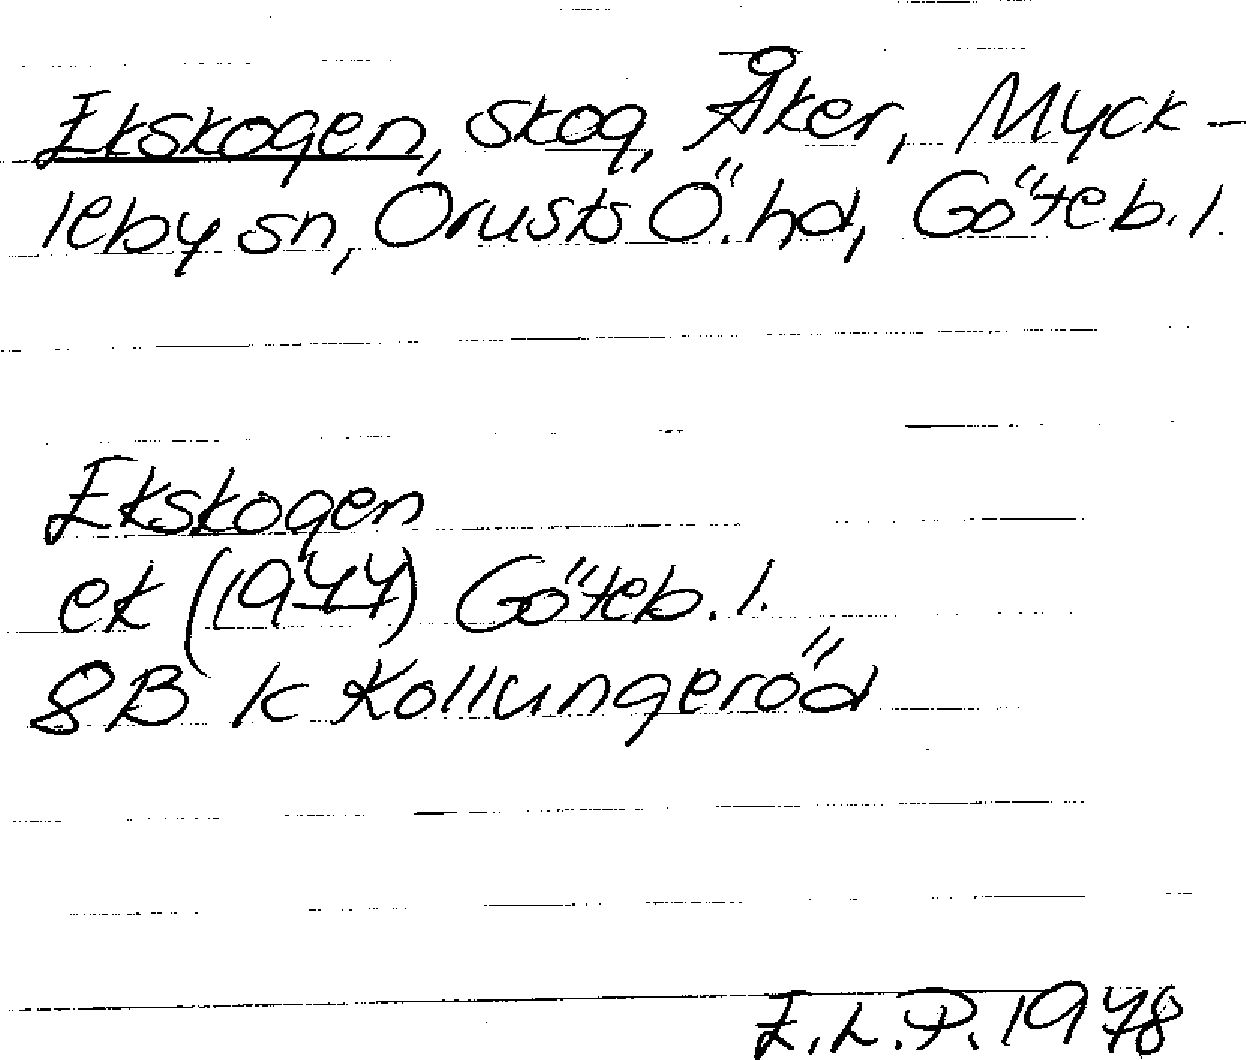 Ekskogen, skog, Åker, Myck-
leby sn, Orusts Ö. hd, Göteb. l.
Ekskogen
ek (1977) Göteb. l.
8B k Kollungeröd
E.L.P. 1978